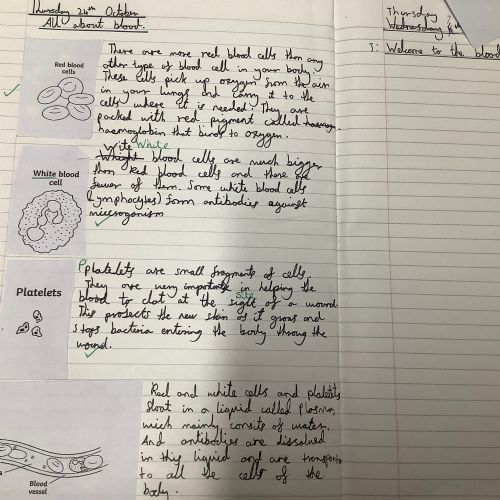 Thursday 24th October
All about blood.
Red blood
cells
There are more red blood cells than any
other type of blood cell in your body
These cells pick up oxygen from the air
in your lungs and carry it to the
cells where it is needed. They are
packed with red pigment called haemog
haemoglobin that binds to oxygen.
White blood
cell
Write White
Wheight blood cells are much bigger
than Red blood cells and there are
fewer of them. Some white blood cells
(Lymphocytes) form antibodies against
microganism
Platelets
Pplatelets are small fragments of cells.
They are very important in helping the
site
blood to clot at the sight of a wound.
This protects the new skin as it grows and
stops bacteria entering the body throug the
wound.
Red and white cells and platelets
float in a liquid called Plasma,
wich mainly consits of water.
And antibodies are dissolved
in this liquid and are transporte
to all the cells of the
body.
Blood
vessel
Thursday
Wednesday
I: Welcome to the blood